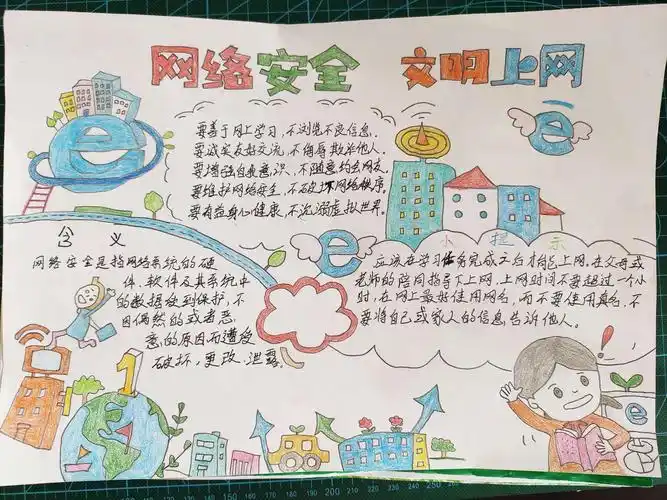 网络安全 文明上网
要善于网上学习,不浏览不良信息。
要诚实友好交流,不侮辱欺诈他人。
要增强自我意识,不随意约会网友。
要维护网络安全,不破坏网络秩序。
要有益身心健康,不沉溺虚拟世界。
含义
网络安全是指网络系统的硬
件、软件及其系统中
的数据受到保护,不
因偶然的或者恶
意的原因而遭受
破坏、更改、泄露。
小提示
应该在学习任务完成之后才能上网。在父母或
老师的陪同指导下上网,上网时间不要超过一个小
时,在网上最好使用网名,而不要使用真名,不
要将自己或家人的信息告诉他人。
1